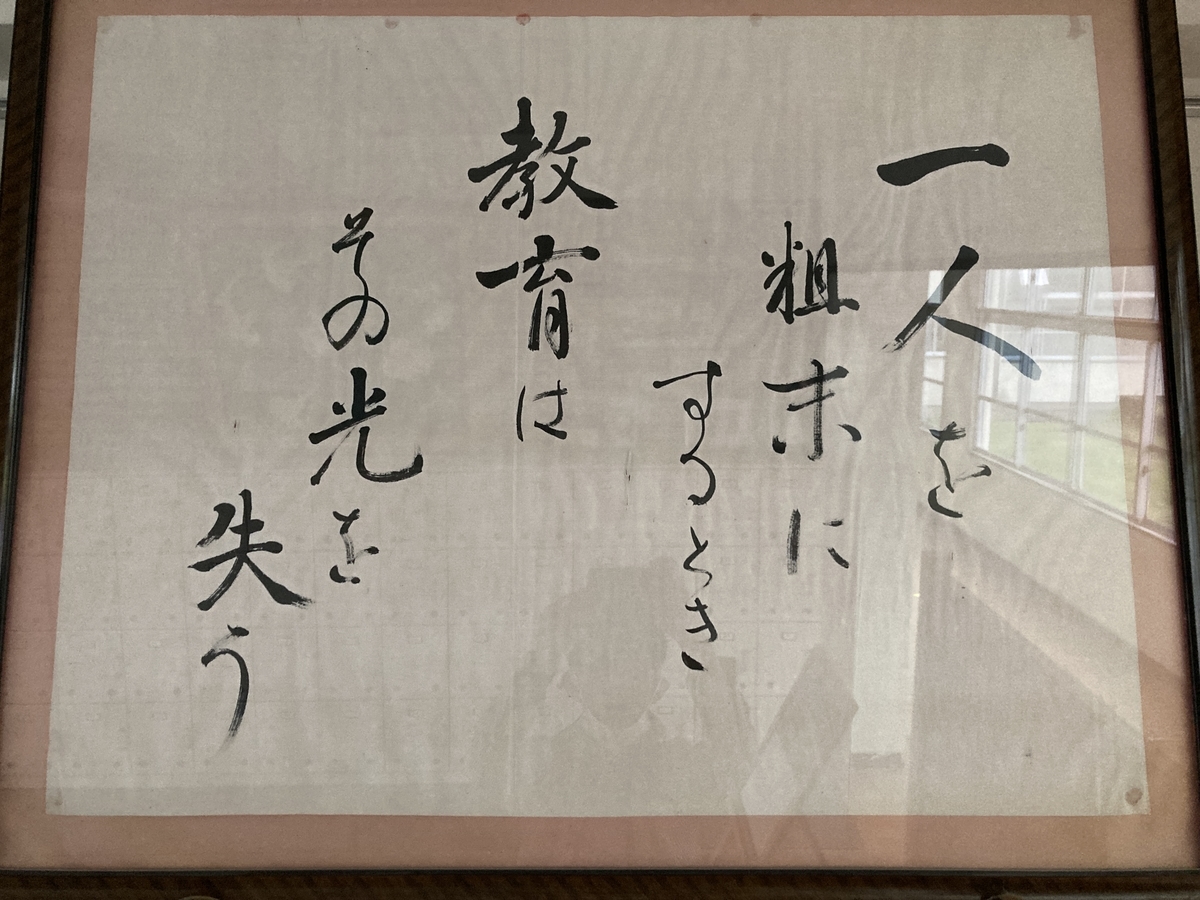 一人を
粗末に
するとき
教育は
その光を
失う